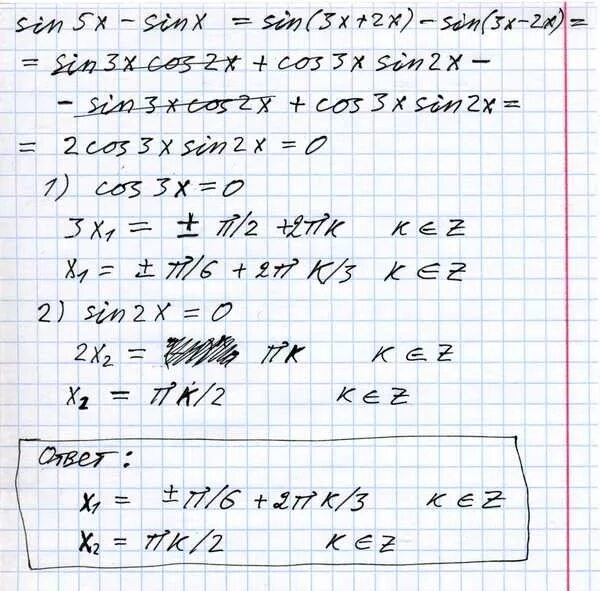 sin 5x - sin x = sin(3x+2x) - sin(3x-2x) =
= sin 3x cos 2x + cos 3x sin 2x -
- sin 3x cos 2x + cos 3x sin 2x =
= 2 cos 3x sin 2x = 0
1) cos 3x = 0
3x₁ = ± π/2 + 2πk k ∈ Z
x₁ = ± π/6 + 2π k/3 k ∈ Z
2) sin 2x = 0
2x₂ = πk k ∈ Z
x₂ = πk/2 k ∈ Z
Ответ:
x₁ = ± π/6 + 2πk/3 k ∈ Z
x₂ = πk/2 k ∈ Z